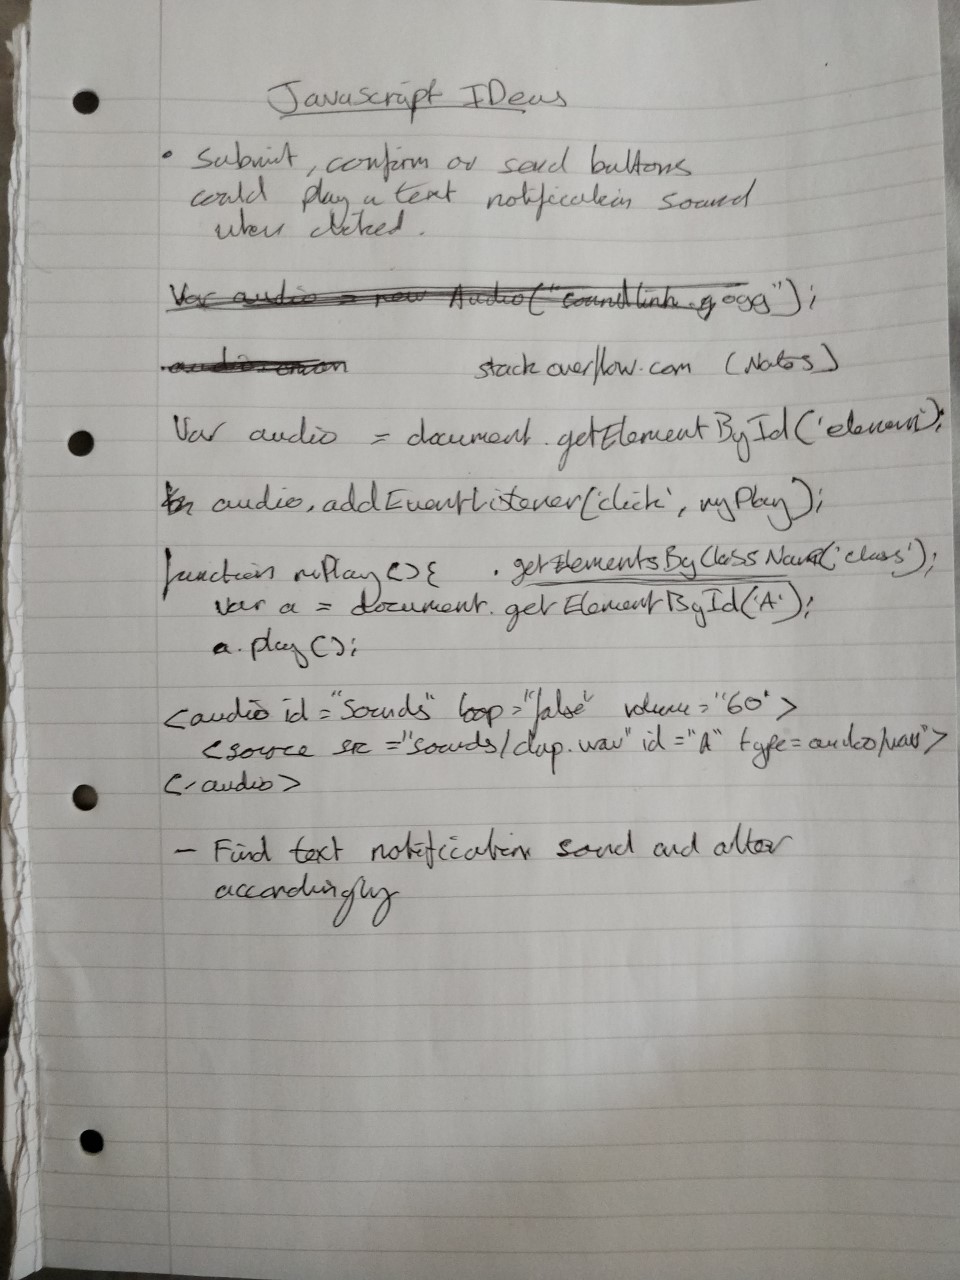 Javascript IDeas
• Submit, confirm or send buttons
could play a text notification sound
when clicked.
Var audio = new Audio("soundlink.g ogg");
audio.
stackoverflow.com (Notes)
Var audio = document.getElementById('element');
audio.addEventListener('click', myPlay);
function myPlay(){ .getElementsByClassName('class');
var a = document.getElementById('A');
a.play();
<audio id="Sounds" loop="false" volume="60">
<source src="sounds/clap.wav" id="A" type=audio/wav">
</audio>
- Find text notification sound and alter
accordingly